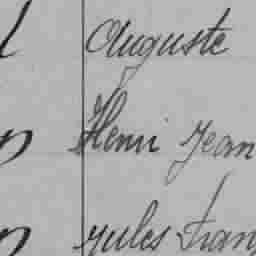 Auguste
Henri Jean
Jules